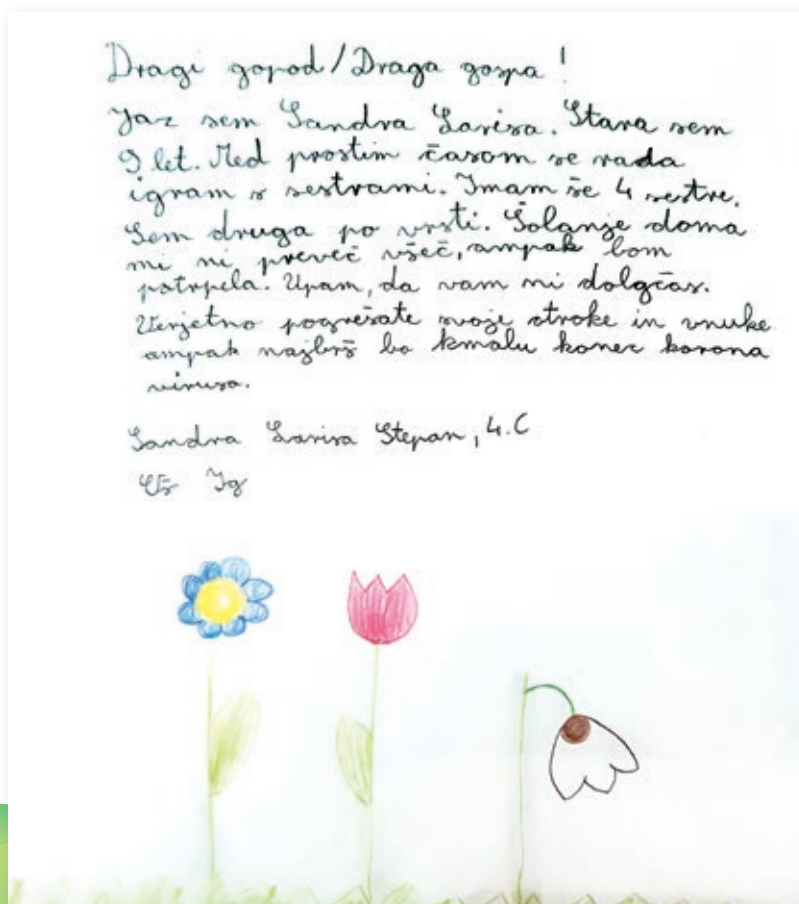 Dragi gopod/Draga gospa!
Jaz sem Sandra Larisa. Stara sem
9 let. Med prostim časom se rada
igram s sestrami. Imam še 4 sestre.
Sem druga po vrsti. Šolanje doma
mi ni preveč všeč, ampak bom
potrpela. Upam, da vam ni dolgčas.
Verjetno pogrešate svoje otroke in vnuke
ampak najbrš bo kmalu konec korona
virusa.
Sandra Larisa Stepan, 4.C
OŠ Ig